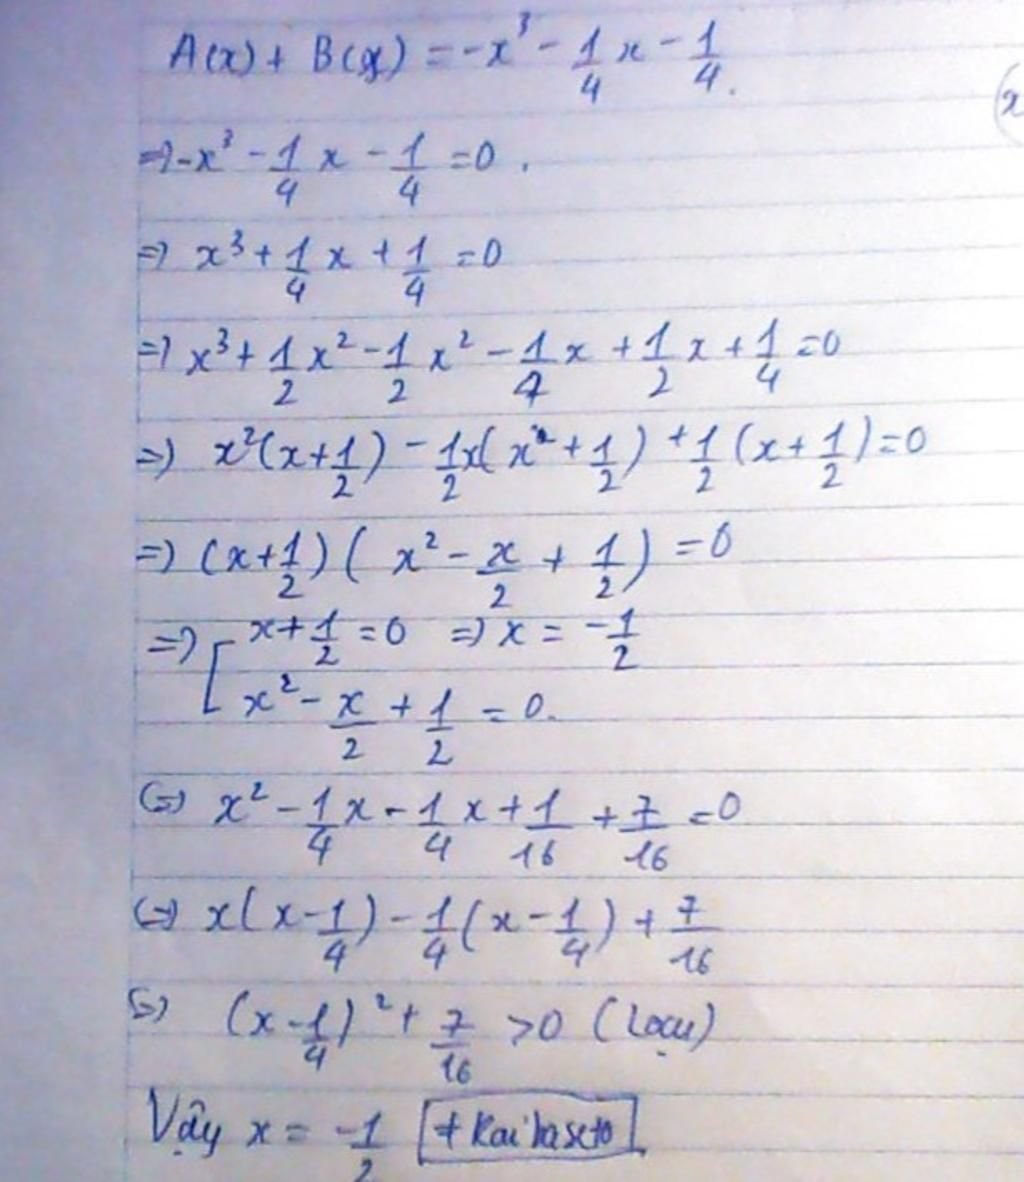 A(x) + B(x) = -x³ - 1/4 x - 1/4.
(x
=> -x³ - 1/4 x - 1/4 = 0.
=> x³ + 1/4 x + 1/4 = 0
=> x³ + 1/2 x² - 1/2 x² - 1/4 x + 1/2 x + 1/4 = 0
=> x²(x + 1/2) - 1/2 x(x + 1/2) + 1/2 (x + 1/2) = 0
=> (x + 1/2)(x² - x/2 + 1/2) = 0
=> [ x + 1/2 = 0 => x = -1/2
x² - x/2 + 1/2 = 0.
(=) x² - 1/4 x - 1/4 x + 1/16 + 7/16 = 0
(=) x(x - 1/4) - 1/4 (x - 1/4) + 7/16
(=) (x - 1/4)² + 7/16 > 0 (Loại)
Vậy x = -1/2